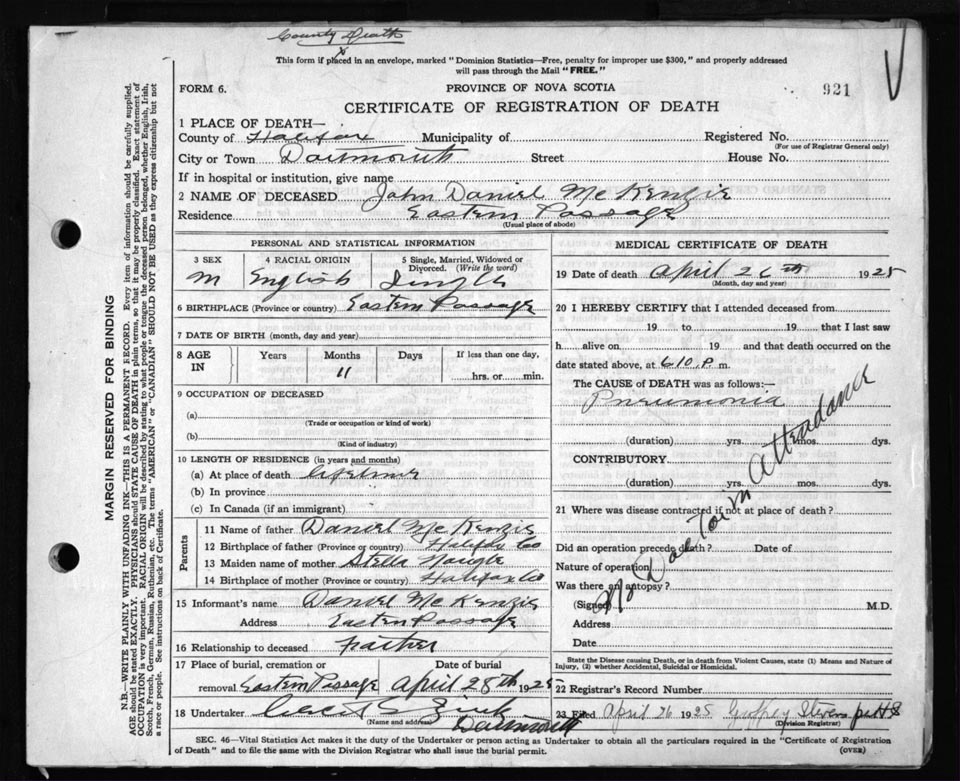 County Death
This form if placed in an envelope, marked "Dominion Statistics—Free, penalty for improper use $300," and properly addressed
will pass through the Mail "FREE."
FORM 6.
PROVINCE OF NOVA SCOTIA
921
CERTIFICATE OF REGISTRATION OF DEATH
1 PLACE OF DEATH—
County of Halifax Municipality of Registered No.
(For use of Registrar General only)
City or Town Dartmouth Street House No.
If in hospital or institution, give name
2 NAME OF DECEASED John Daniel McKenzie
Residence Eastern Passage
(Usual place of abode)
PERSONAL AND STATISTICAL INFORMATION
3 SEX 4 RACIAL ORIGIN 5 Single, Married, Widowed or
Divorced. (Write the word)
M English Single
6 BIRTHPLACE (Province or country) Eastern Passage
7 DATE OF BIRTH (month, day and year)
8 AGE IN Years Months Days If less than one day,
11 hrs. or min.
9 OCCUPATION OF DECEASED
(a)
(Trade or occupation or kind of work)
(b)
(Kind of industry)
10 LENGTH OF RESIDENCE (in years and months)
(a) At place of death lifetime
(b) In province
(c) In Canada (if an immigrant)
Parents
11 Name of father Daniel McKenzie
12 Birthplace of father (Province or country) Halifax Co
13 Maiden name of mother Stella
14 Birthplace of mother (Province or country) Halifax Co
15 Informant's name Daniel McKenzie
Address Eastern Passage
16 Relationship to deceased Father
17 Place of burial, cremation or Date of burial
removal Eastern Passage April 28th 1925
18 Undertaker Zink
(Name and address) Dartmouth
MEDICAL CERTIFICATE OF DEATH
19 Date of death April 26th 1925
(Month, day and year)
20 I HEREBY CERTIFY that I attended deceased from
19 to 19 that I last saw
h alive on 19 and that death occurred on the
date stated above, at 6.10 P. m.
The CAUSE OF DEATH was as follows:—
Pneumonia
(duration) yrs. mos. dys.
CONTRIBUTORY
(duration) yrs. mos. dys.
No Doctor in Attendance
21 Where was disease contracted if not at place of death?
Did an operation precede death? Date of
Nature of operation
Was there an autopsy?
(Signed) M.D.
Address
Date
State the Disease causing Death, or in death from Violent Causes, state (1) Means and Nature of
Injury, (2) whether Accidental, Suicidal or Homicidal.
22 Registrar's Record Number
23 Filed April 26 1925 Godfrey Stevens per HS
(Division Registrar)
SEC. 46—Vital Statistics Act makes it the duty of the Undertaker or person acting as Undertaker to obtain all the particulars required in the "Certificate of Registration
of Death" and to file the same with the Division Registrar who shall issue the burial permit. (OVER)
MARGIN RESERVED FOR BINDING
N.B.—WRITE PLAINLY WITH UNFADING INK—THIS IS A PERMANENT RECORD. Every item of information should be carefully supplied.
AGE should be stated EXACTLY. PHYSICIANS should STATE CAUSE OF DEATH in plain terms, so that it may be properly classified. Exact statement of
OCCUPATION is very important. RACIAL ORIGIN will be described by stating to what people or tongue the deceased person belonged, whether English, Irish,
Scotch, French, German, Russian, Ruthenian, etc. The terms "AMERICAN" or "CANADIAN" SHOULD NOT BE USED as they express citizenship but not
a race or people. See instructions on back of Certificate.